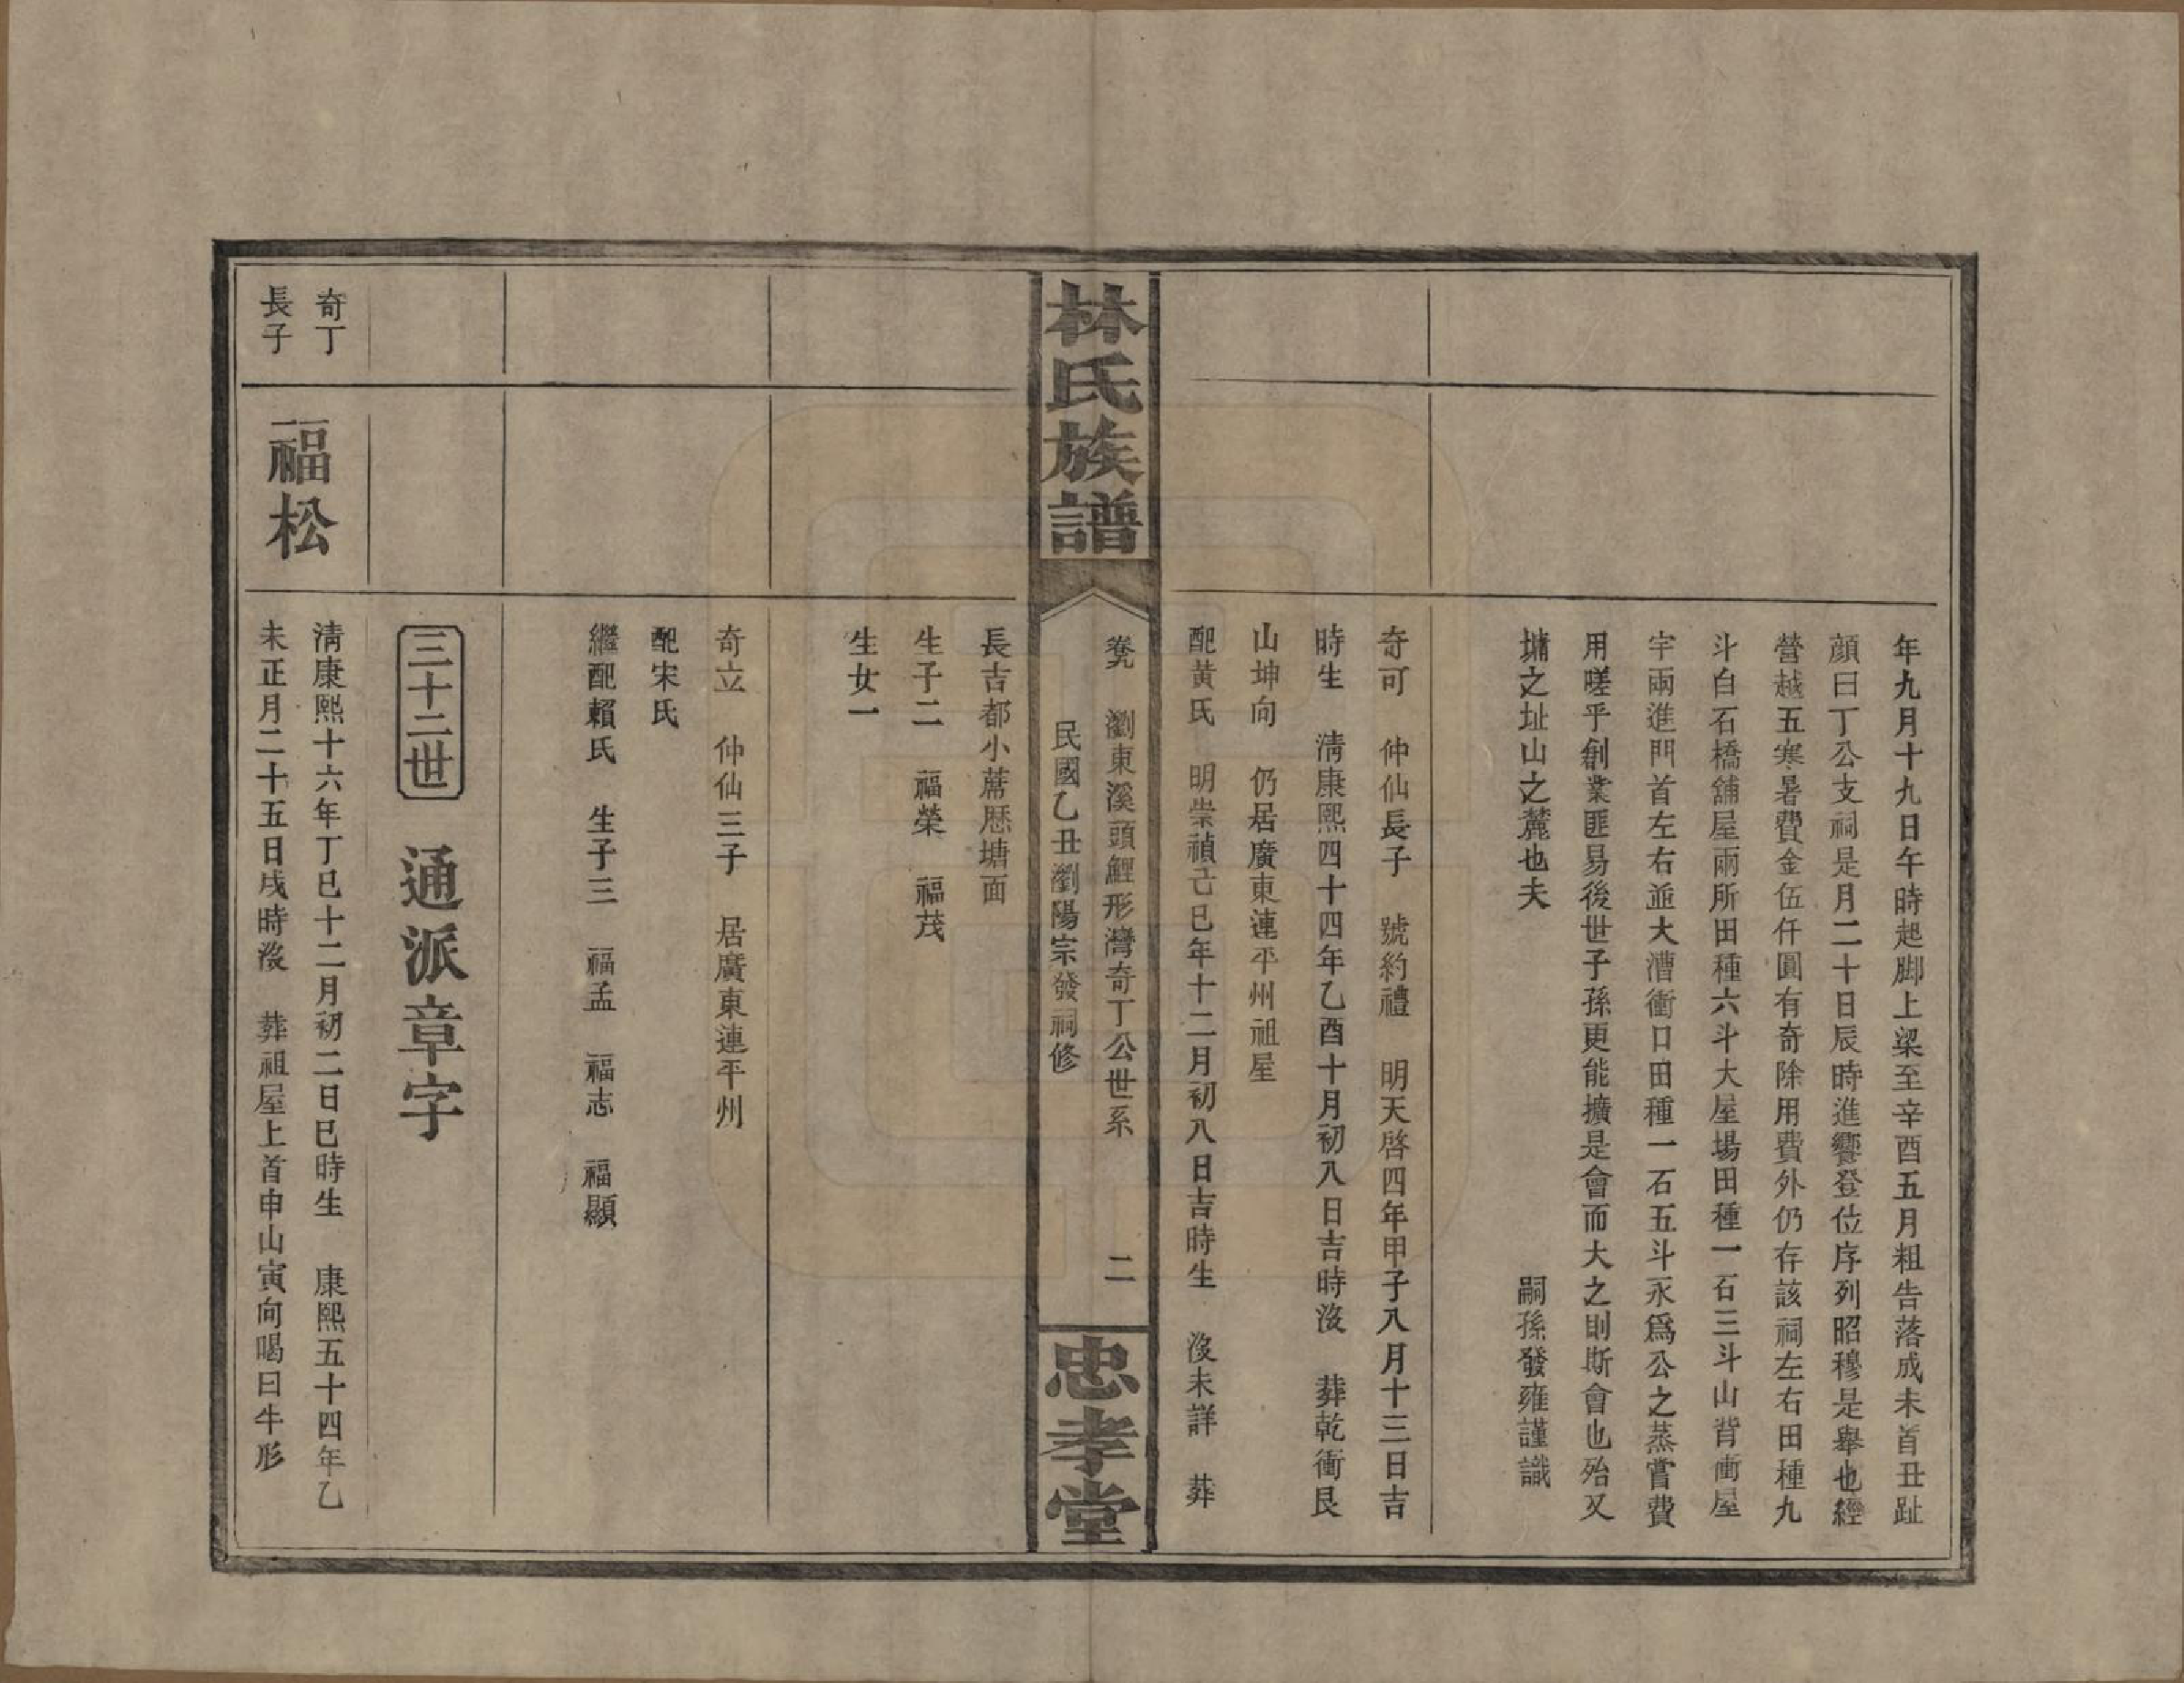 年九月十九日午時起脚上梁至辛酉五月粗告落成未首丑趾
顔曰丁公支祠是月二十日辰時進饗登位序列昭穆是舉也經
營越五寒暑費金伍仟圓有奇除用費外仍存該祠左右田種九
斗白石橋舖屋兩所田種六斗大屋場田種一石三斗山背衝屋
宇兩進門首左右並大漕衝口田種一石五斗永爲公之蒸嘗費
用嗟乎創業匪易後世子孫更能擴是會而大之則斯會也殆又
墉之址山之麓也夫　嗣孫發雍謹識
奇可　仲仙長子　號約禮　明天啓四年甲子八月十三日吉
時生　清康熙四十四年乙酉十月初八日吉時沒　葬乾衝艮
山坤向　仍居廣東連平州祖屋
配黃氏　明崇禎己巳年十二月初八日吉時生　沒未詳　葬
林氏族譜
卷九　瀏東溪頭鯉形灣奇丁公世系　二
民國乙丑瀏陽宗發祠修
忠孝堂
長吉都小蓆歷塘面
生子二　福榮　福茂
生女一
奇立　仲仙三子　居廣東連平州
配宋氏
繼配賴氏　生子三　福孟　福志　福顯
三十二世　通派章字
奇丁
長子
福松
清康熙十六年丁巳十二月初二日巳時生　康熙五十四年乙
未正月二十五日戌時沒　葬祖屋上首申山寅向喝曰牛形